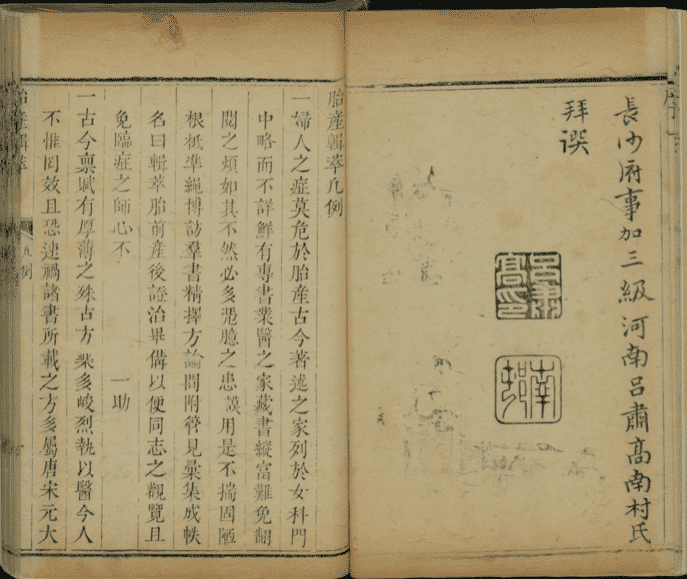 長沙府事加三級河南呂肅髙南村氏
拜譔
呂肅髙印
南邨
胎產輯萃凡例
一婦人之症莫危於胎產古今著述之家列於女科門
中略而不詳鮮有專書業醫之家藏書縱富難免翻
閱之煩如其不然必多凴臆之患誤用是不揣固陋
根柢準繩博訪羣書精擇方論間附管見彙集成帙
名曰輯萃胎前產後證治畢備以便同志之觀覽且
免臨症之師心不 一助
一古今禀賦有厚薄之殊古方藥多峻烈執以醫今人
不惟罔效且恐速禍諸書所載之方多屬唐宋元大
胎產輯萃 凡例